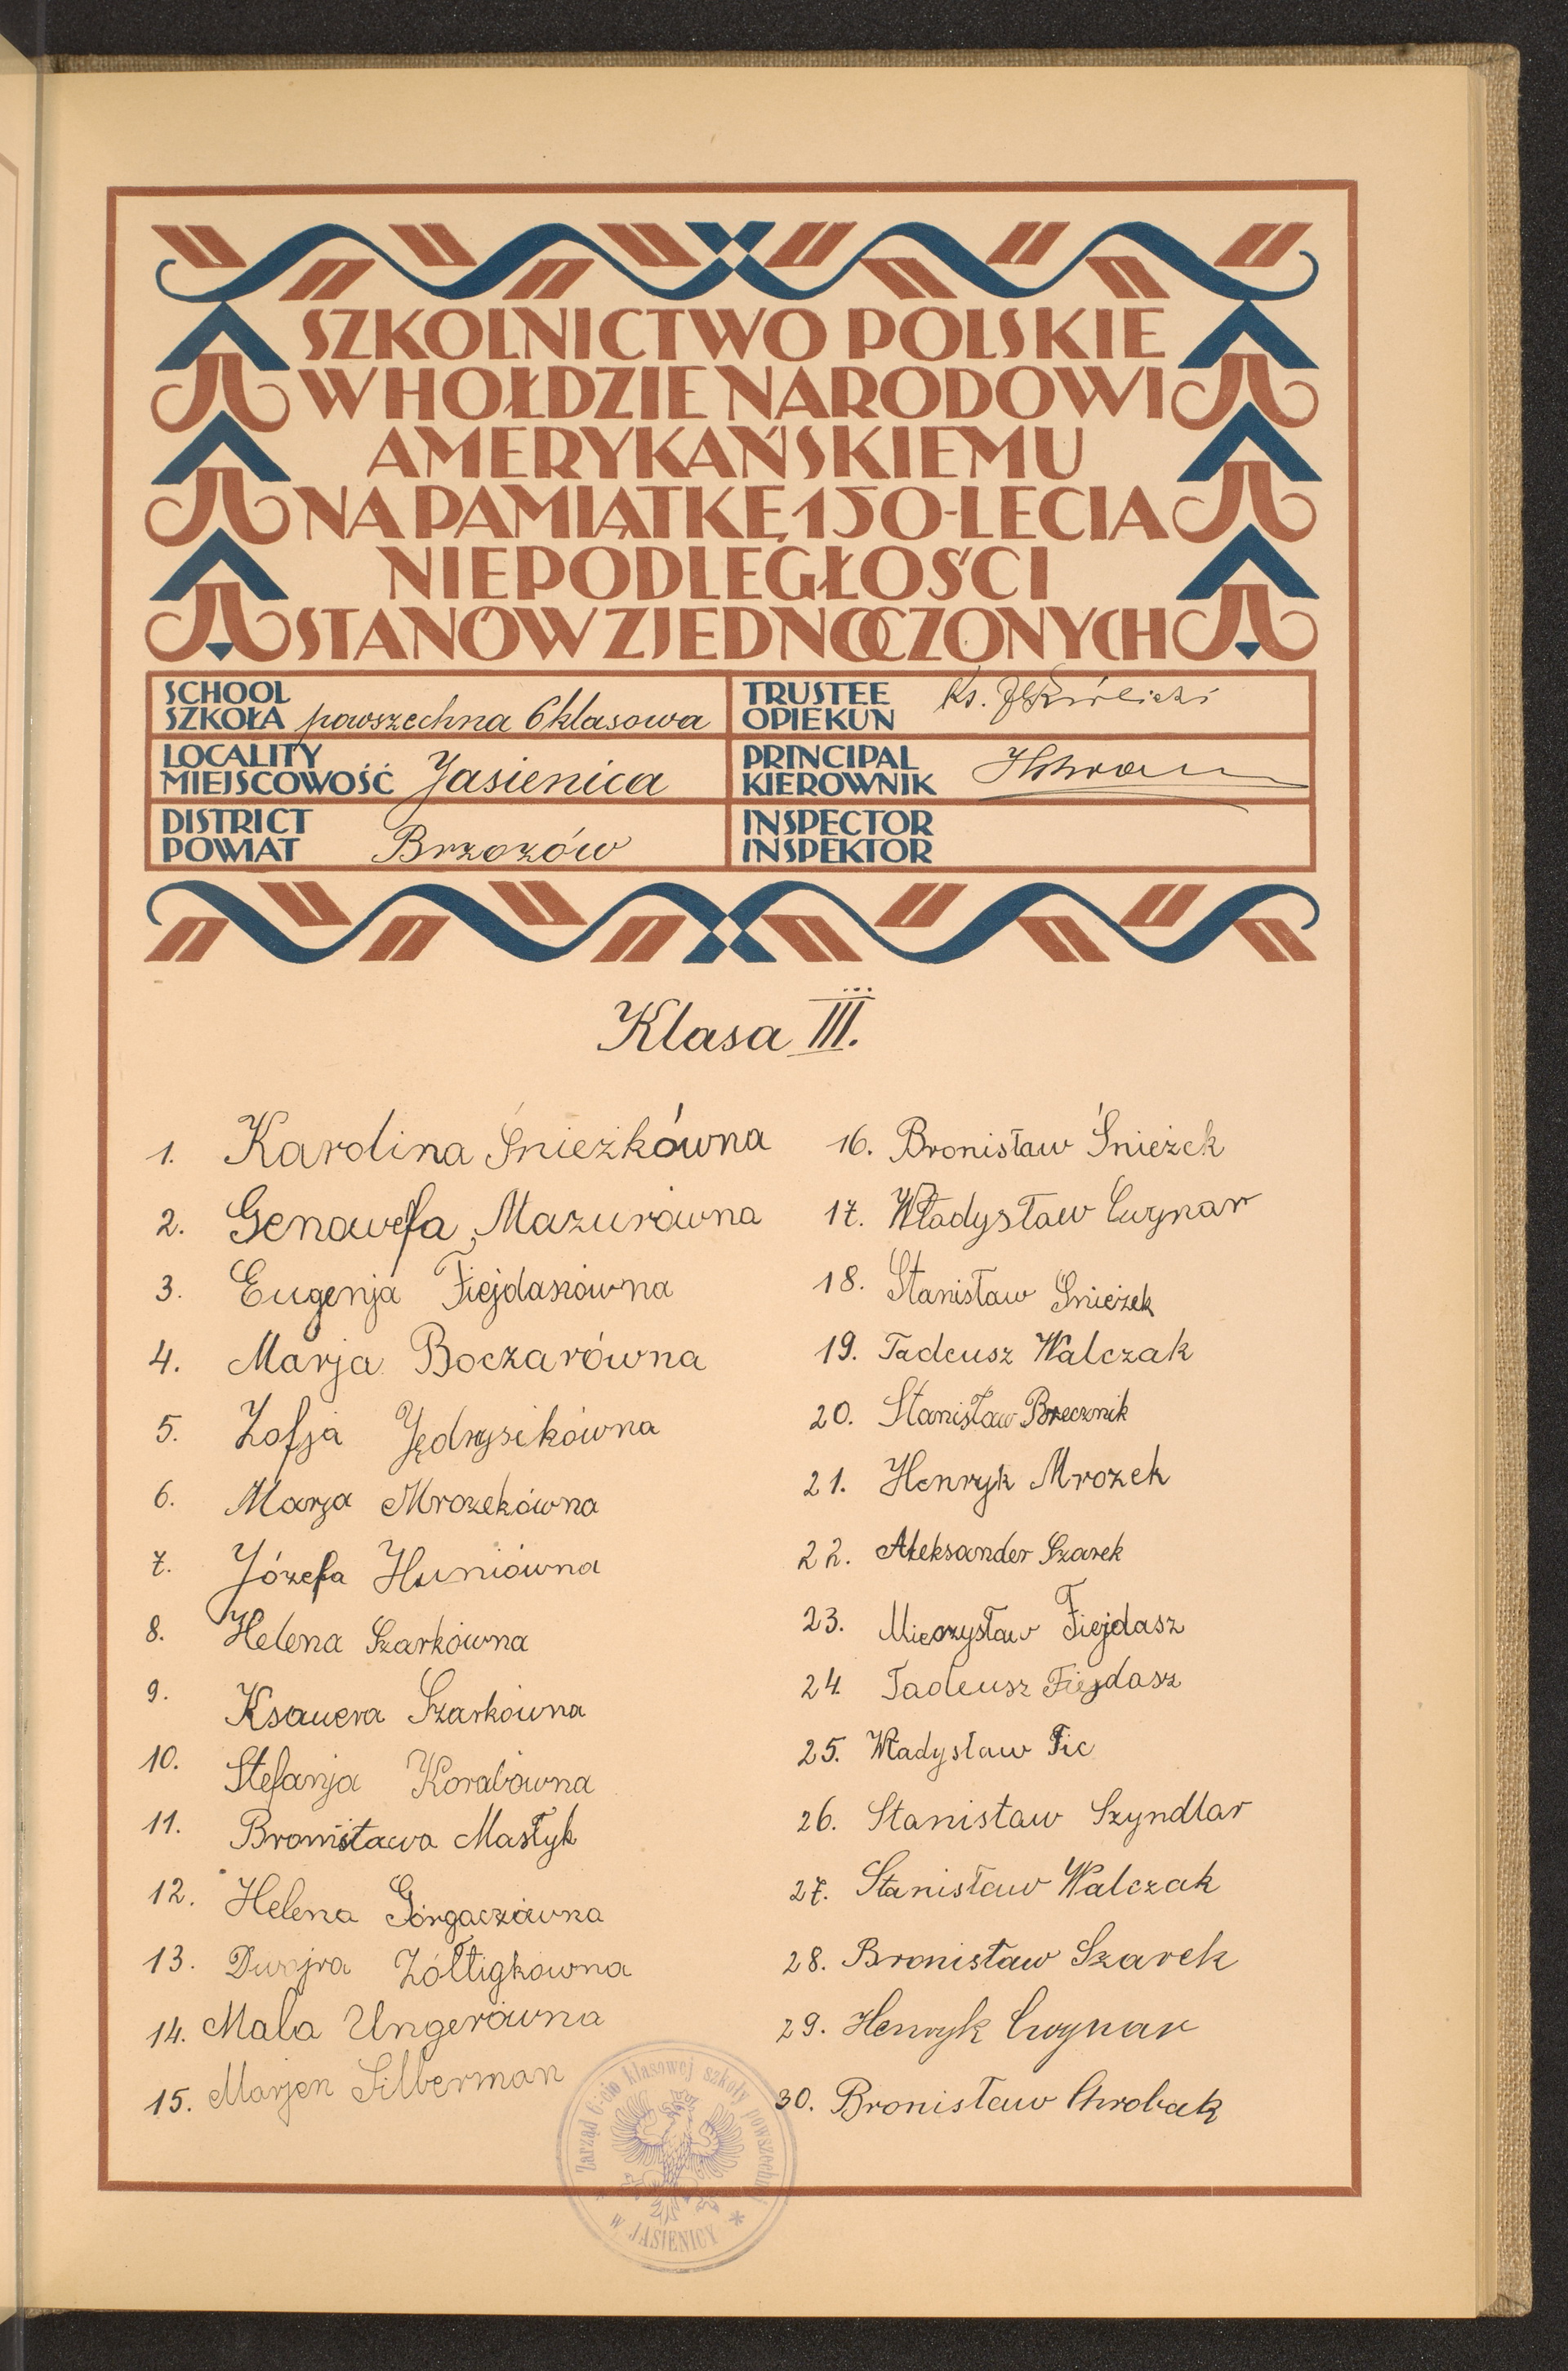 SZKOLNICTWO POLSKIE
W HOŁDZIE NARODOWI
AMERYKAŃSKIEMU
NA PAMIĄTKĘ 150-LECIA
NIEPODLEGŁOŚCI
STANÓW ZJEDNOCZONYCH
SCHOOL
SZKOŁA powszechna 6klasowa
LOCALITY
MIEJSCOWOŚĆ Jasienica
DISTRICT
POWIAT Brzozów
TRUSTEE
OPIEKUN Ks.
PRINCIPAL
KIEROWNIK
INSPECTOR
INSPEKTOR
Klasa III.
1. Karolina Śnieżkówna
2. Genowefa Mazurówna
3. Eugenja Fiejdaszówna
4. Marja Boczarówna
5. Zofja Jędrysikówna
6. Marja Mrozekówna
7. Józefa Huniówna
8. Helena Szarkówna
9. Ksawera Szarkówna
10. Stefanja Korabówna
11. Bronisława Masłyk
12. Helena Górgaczówna
13. Dwojra Żółtigkówna
14. Mala Ungerówna
15. Marjen Silberman
16. Bronisław Śnieżek
17. Władysław Cwynar
18. Stanisław Śnieżek
19. Tadeusz Walczak
20. Stanisław Brecznik
21. Henryk Mrozek
22. Aleksander Szarek
23. Mieczysław Fiejdasz
24. Tadeusz Fiejdasz
25. Władysław Fic
26. Stanisław Szyndlar
27. Stanisław Walczak
28. Bronisław Szarek
29. Henryk Cwynar
30. Bronisław Chrobak
Zarząd 6-cio klasowej szkoły powszechnej
* W JASIENICY *